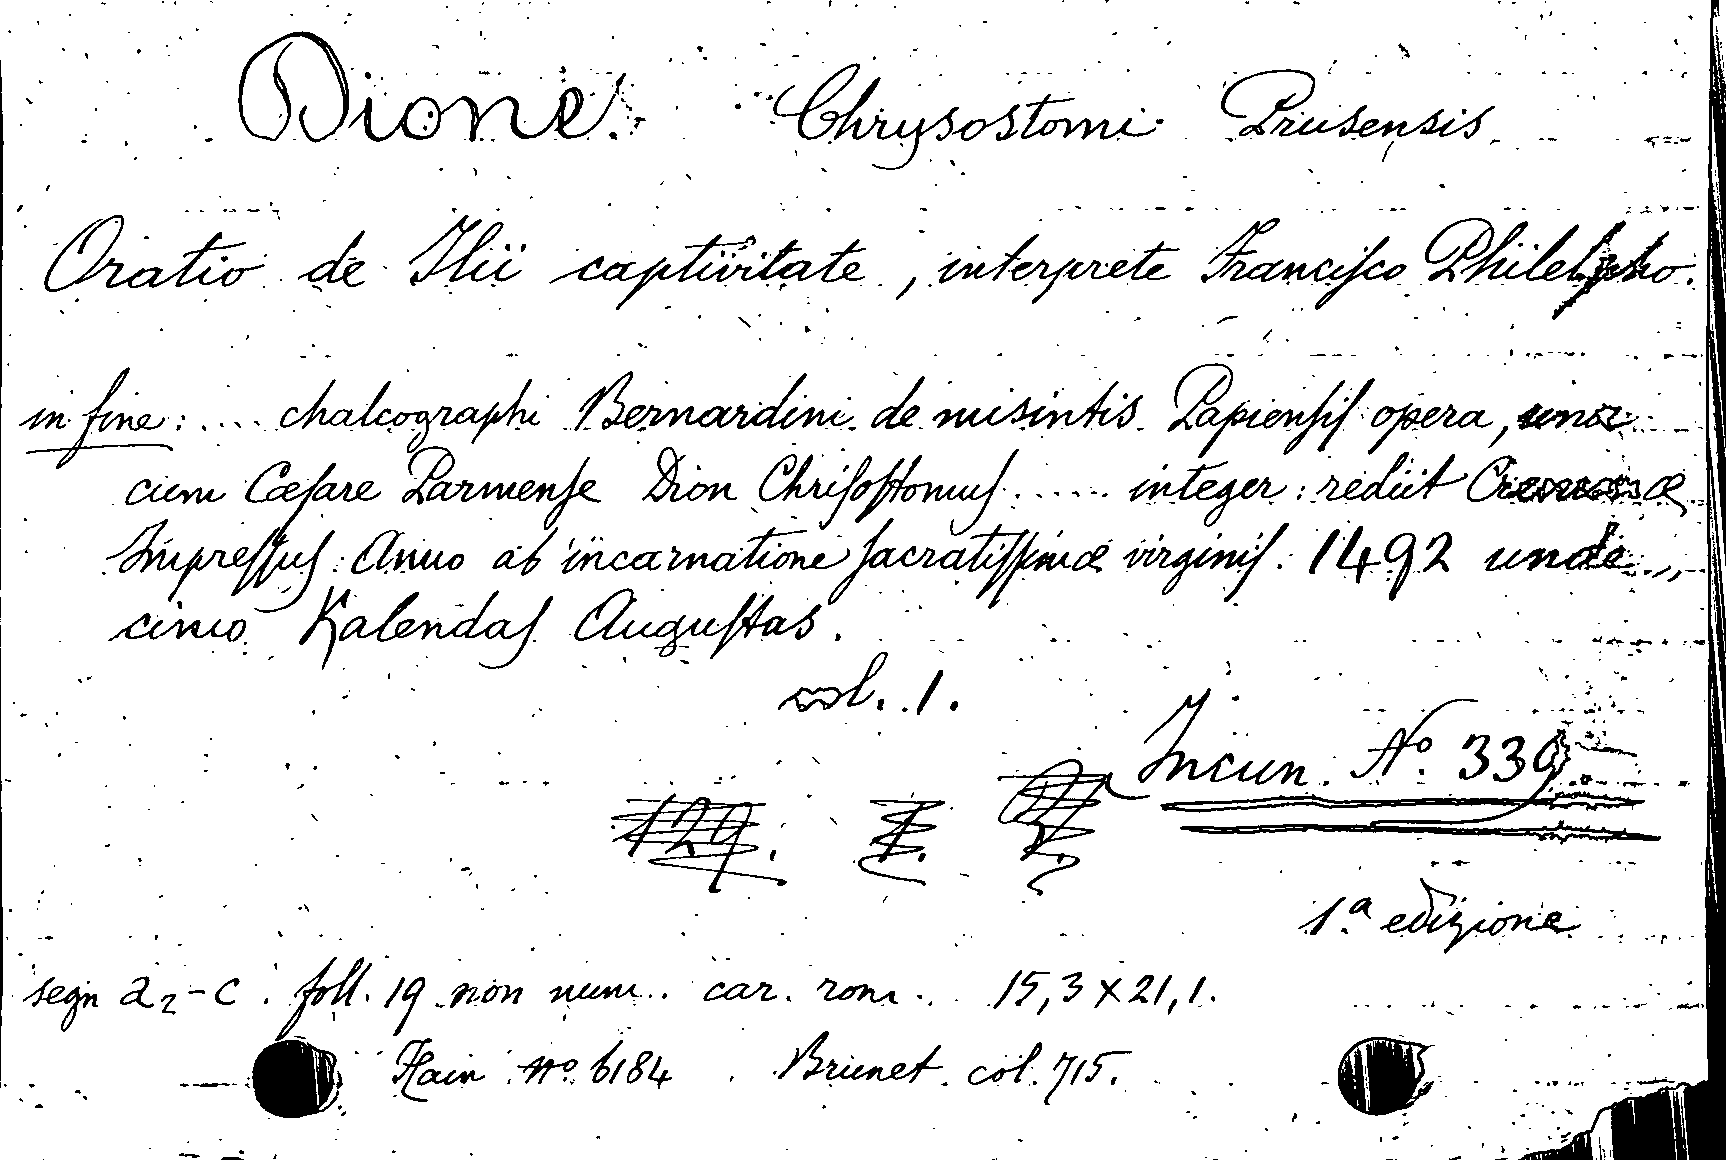 Dione Chrysostomi Prusensis
Oratio de Ilii captivitate, interprete Francisco Philelpho.
in fine: .... chalcographi Bernardini de misintis Papiensis opera, una
cum Cæsare Parmense Dion Chrisostomus ..... integer: rediit Cremonæ
Impressus: Anno ab incarnatione sacratissimæ virginis. 1492 unde„
cimo Kalendas Augustas.
vol. 1.
Incun. No. 339
129. I.
1.a edizione
segn a2-c. foll. 19 non num. car. rom. 15,3 x 21,1.
Hain no. 6184 Brunet. col. 715.